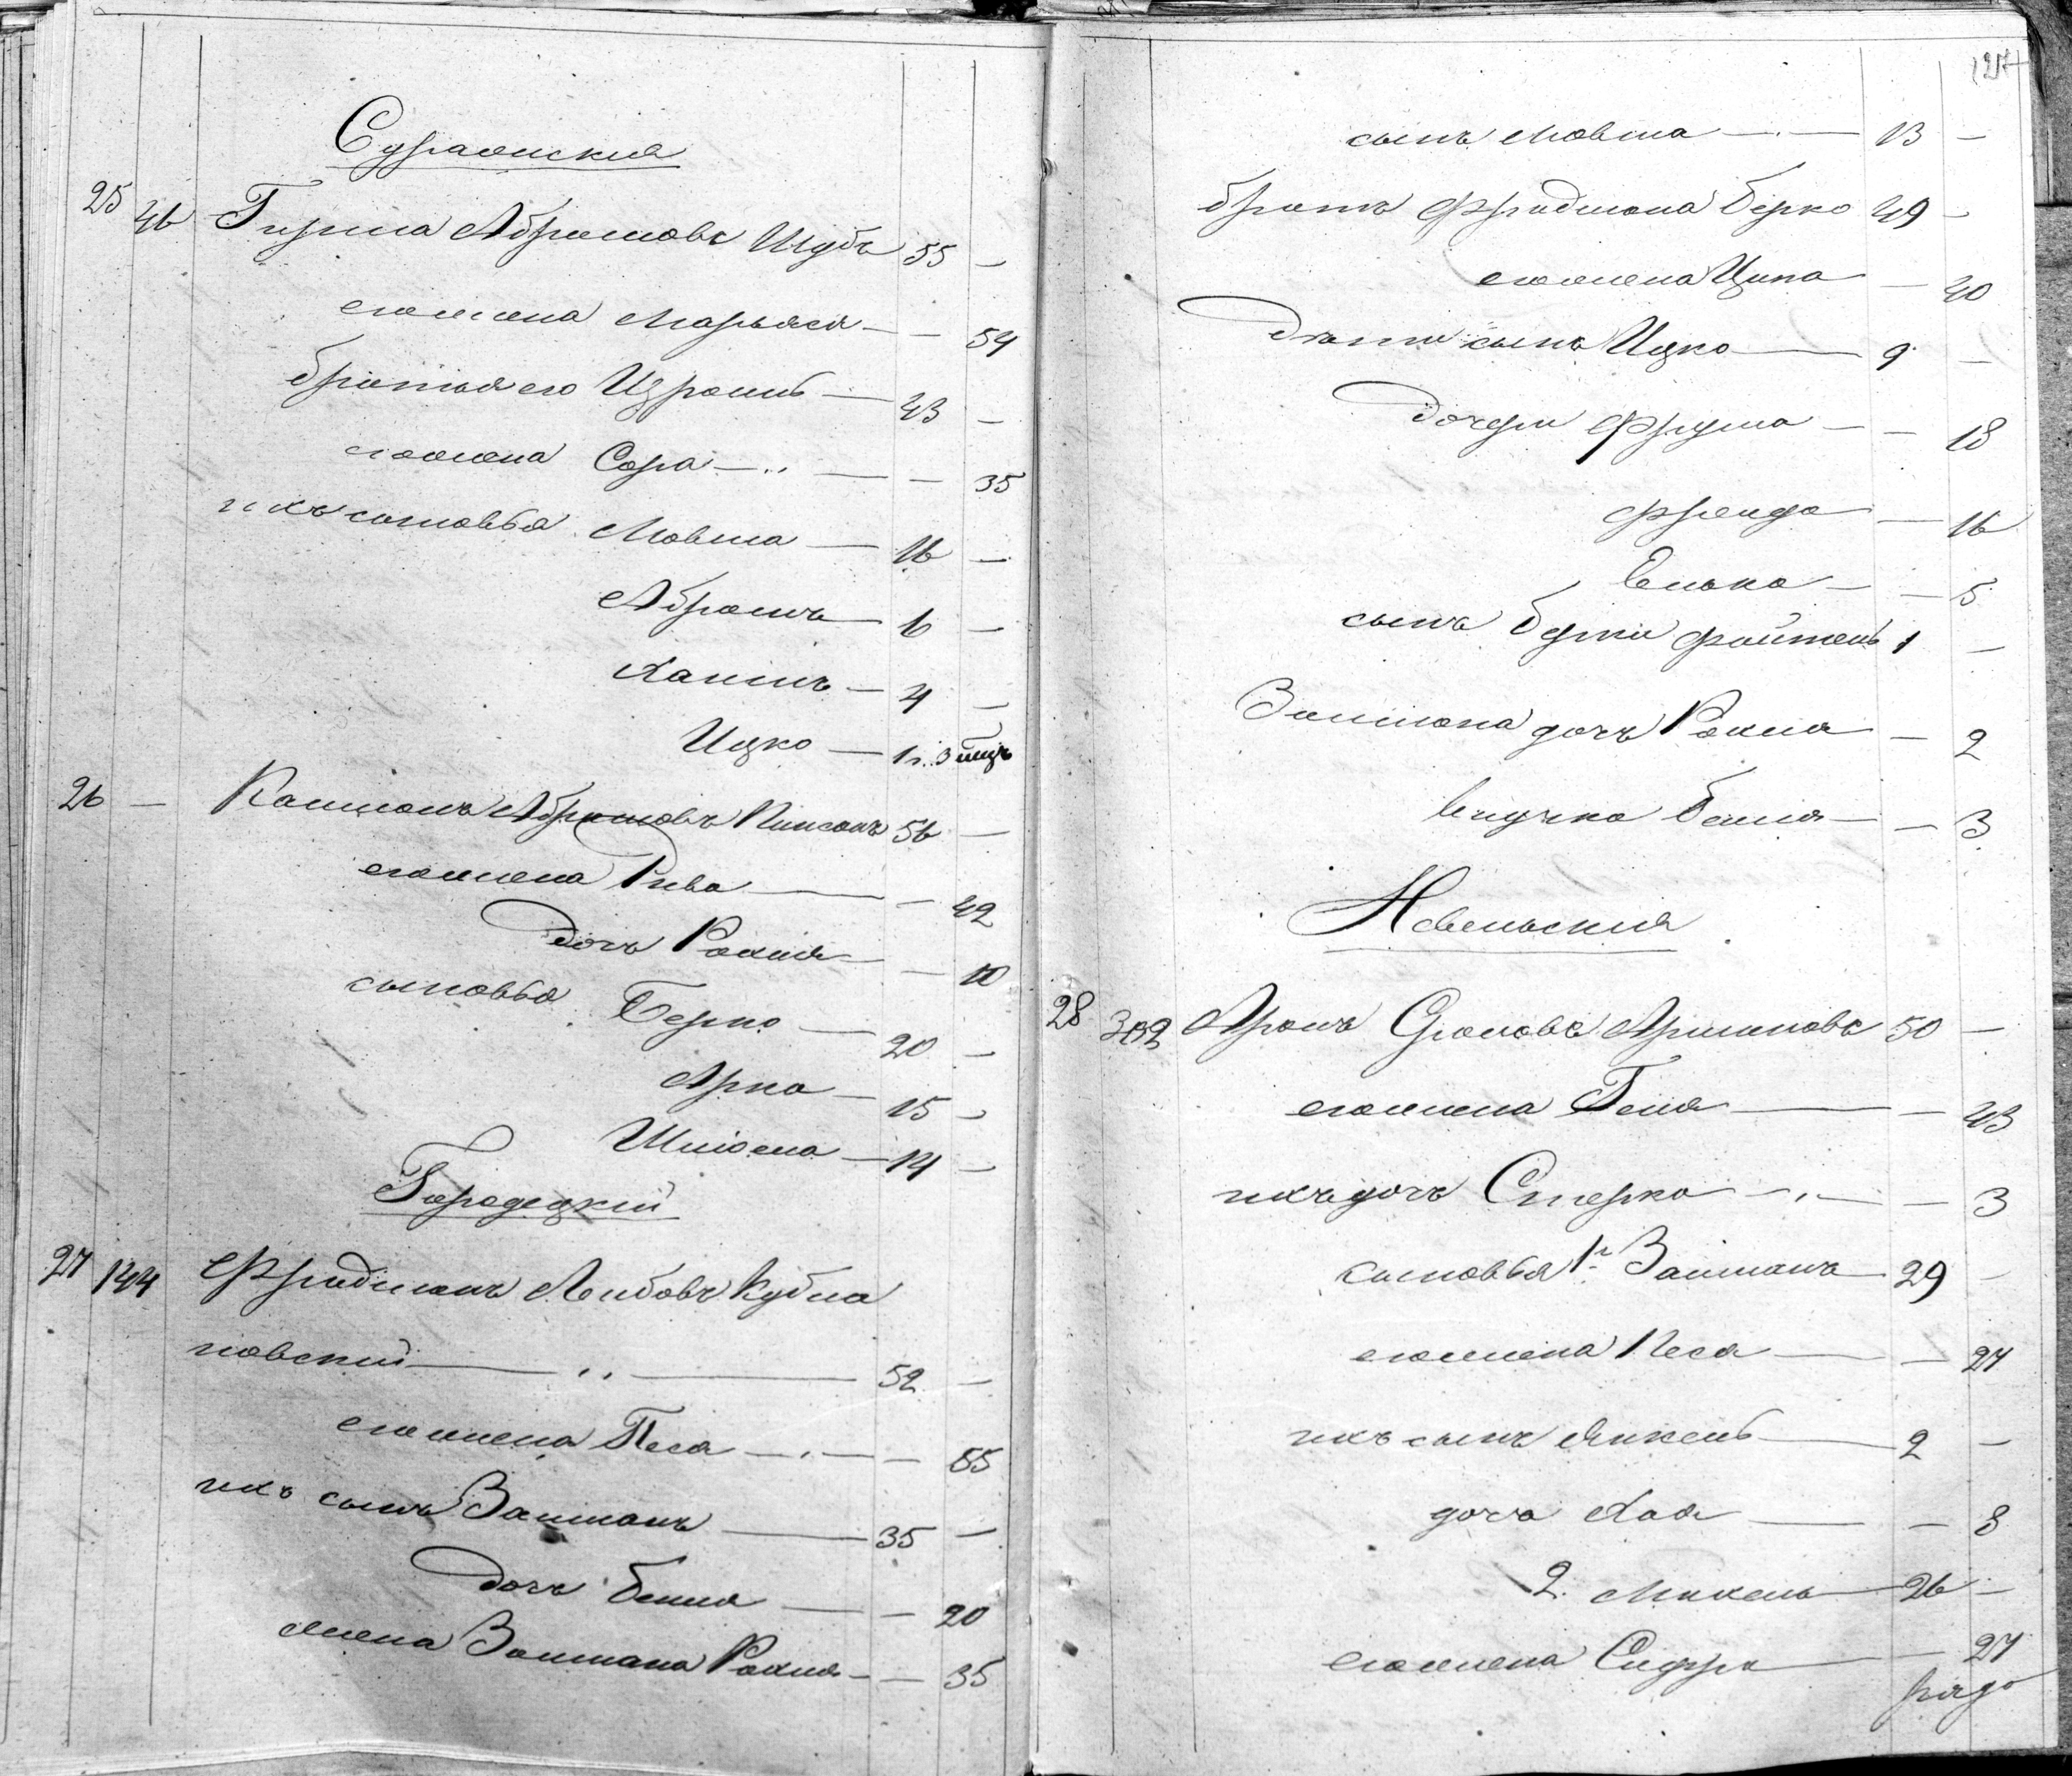 Суражскія
25 46 Гирша Абрамовъ Шубъ 55 —
его жена Марьяся — — 54
братья его Израиль — 43 —
его жена Сора — — 35
ихъ сыновья Мовша — 16 —
Абрамъ — 6 —
Хаимъ — 4 —
Ицко — 1 г. 3 мцъ
26 — Абрамовъ 56 —
его жена Рива — — 42
дочь Рохля — — 10
сыновья Берко — 20 —
Арка — 15 —
— 14 —
Городецкій
27 144 Фридманъ Лейбовъ Кубла
новскій — 52 —
его жена Песа — — 55
ихъ сынъ Залманъ — 35 —
дочь Бейля — — 20
жена Залмана Рохля — — 35
127
сынъ Мовша — 13 —
братъ Фридмана Берко 49 —
его жена Ципа — 40
дѣти сынъ Ицко — 9 —
дочери Фрума — — 18
Фрейда — 16
Елька — — 5
сынъ Берки Файтель 1 —
Залмана дочь Рохля — 2
внучка Бейля — — 3
Невельскія
28 302 Аронъ 50 —
его жена Геня — — 43
ихъ дочь Стерка — — 3
сыновья 1й Залманъ — 29 —
его жена Песа — — 27
ихъ сынъ Янкель — 2 —
дочь Хая — — 8
2. Михель — 26 —
его жена Сифра — 27